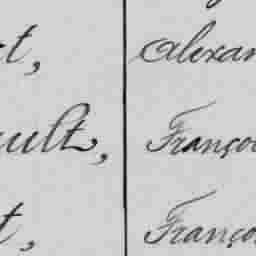 t, Alexan
ult, Françoi
t, François